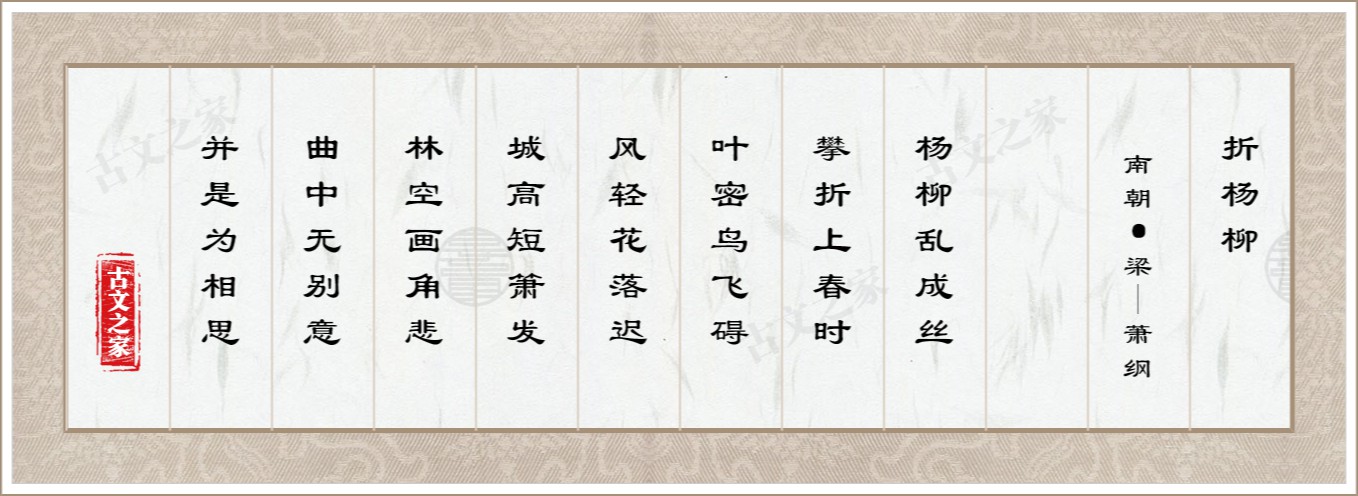 折杨柳
南朝●梁—萧纲
杨柳乱成丝
攀折上春时
叶密鸟飞碍
风轻花落迟
城高短箫发
林空画角悲
曲中无别意
并是为相思
古文之家
古文之家
古文之家
古文之家